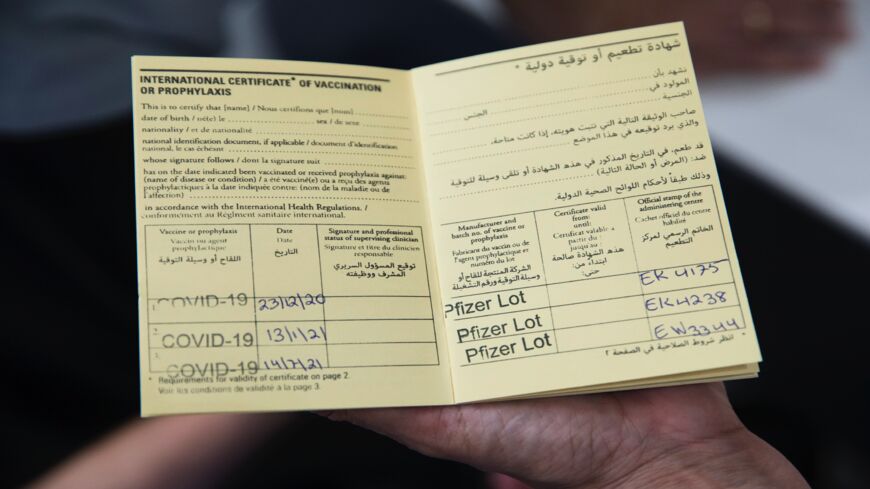 INTERNATIONAL CERTIFICATE* OF VACCINATION
OR PROPHYLAXIS
This is to certify that [name] / Nous certifions que [nom]
date of birth / né(e) le sex / de sexe
nationality / et de nationalité
national identification document, if applicable / document d'identification
national, le cas échéant
whose signature follows / dont la signature suit
has on the date indicated been vaccinated or received prophylaxis against:
(name of disease or condition) / a été vacciné(e) ou a reçu des agents
prophylactiques à la date indiquée contre: (nom de la maladie ou de
l'affection)
in accordance with the International Health Regulations. /
conformément au Règlement sanitaire international.
Vaccine or prophylaxis
Vaccin ou agent
prophylactique
اللقاح أو وسيلة التوقية
Date
Date
التاريخ
Signature and professional
status of supervising clinician
Signature et titre du clinicien
responsable
توقيع المسؤول السريري
المشرف ووظيفته
1. COVID-19 23/12/20
2. COVID-19 13/1/21
3. COVID-19 14/7/21
* Requirements for validity of certificate on page 2.
Voir les conditions de validité à la page 3.
شهادة تطعيم أو توقية دولية *
نشهد بأن
المولود في الجنس
الجنسية
صاحب الوثيقة التالية التي تثبت هويته، إذا كانت متاحة،
والذي يرد توقيعه في هذا الموضع
قد طعم، في التاريخ المذكور في هذه الشهادة أو تلقى وسيلة للتوقية
ضد: (المرض أو الحالة التالية)
وذلك طبقاً لأحكام اللوائح الصحية الدولية.
Manufacturer and
batch no. of vaccine or
prophylaxis
Fabricant du vaccin ou de
l'agent prophylactique et
numéro du lot
الشركة المنتجة للقاح أو
وسيلة التوقية ورقم التشغيلة
Certificate valid
from:
until:
Certificat valable à
partir du :
jusqu'au :
هذه الشهادة صالحة
ابتداءً من:
حتى:
Official stamp of the
administering centre
Cachet officiel du centre
habilité
الخاتم الرسمي لمركز
التطعيم
Pfizer Lot EK 4175
Pfizer Lot EK4238
Pfizer Lot EW3344
* انظر شروط الصلاحية في الصفحة ٢